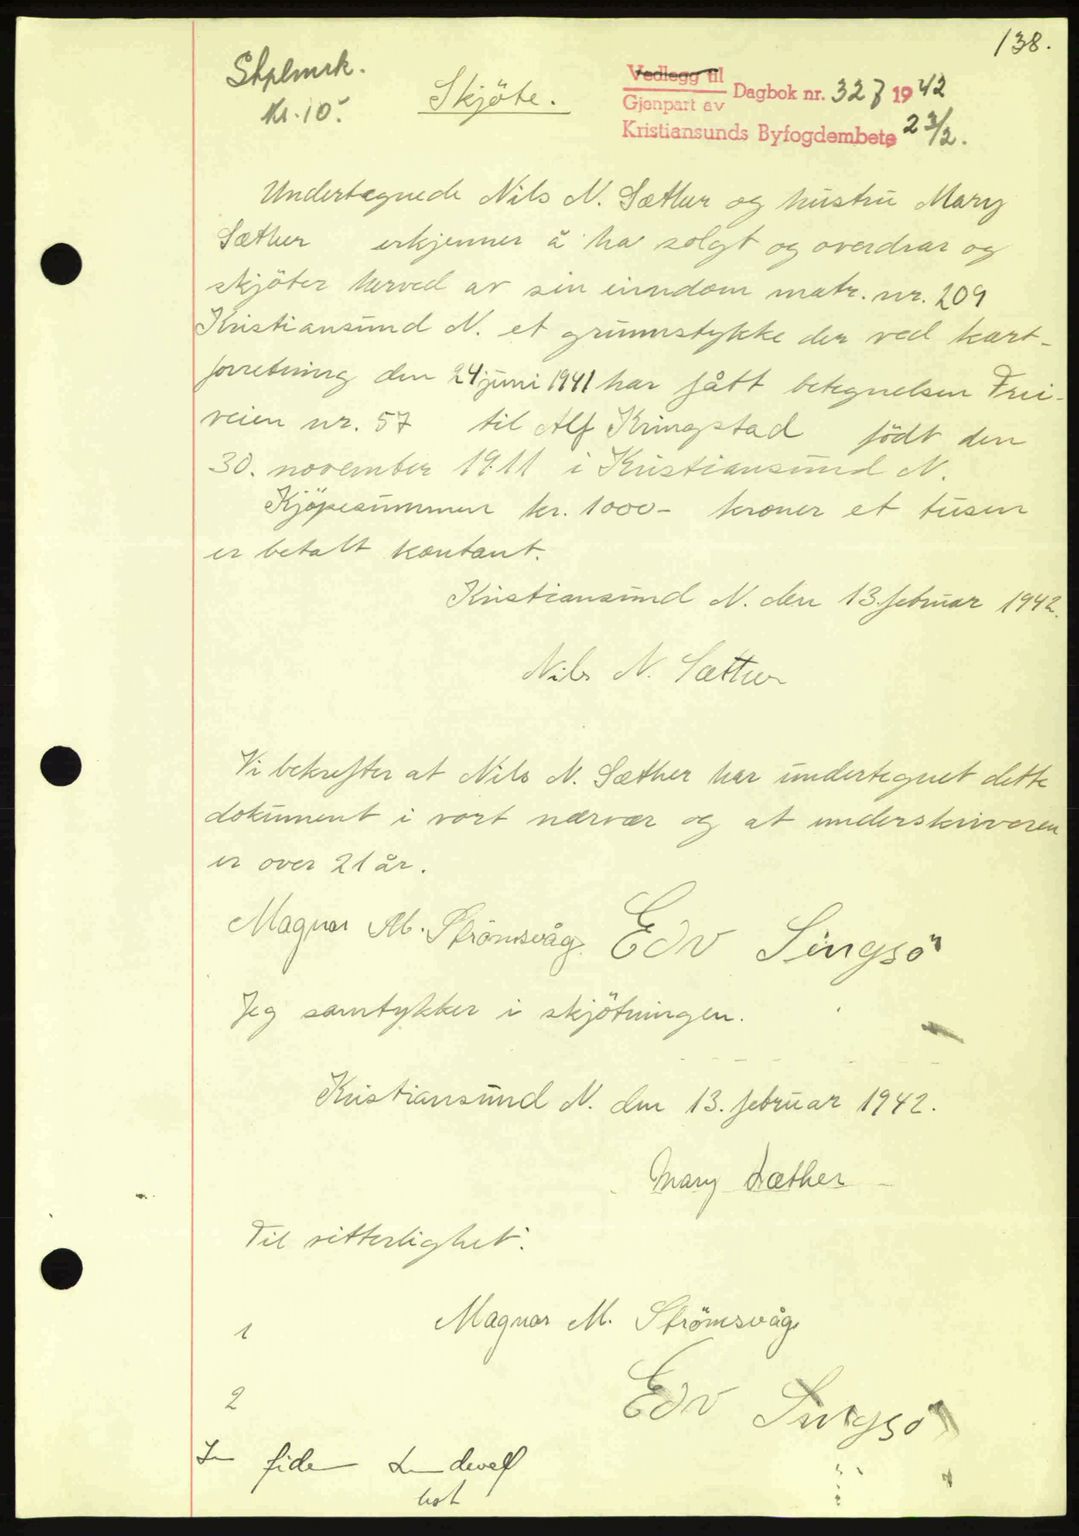 138.
Stplmrk.
kr. 10.
Skjöte.
Vedlegg til
Gjenpart av
Dagbok nr. 327 1942
Kristiansunds Byfogdembete 23/2.
Undertegnede Nils N. Sæther og hustru Mary
Sæther erkjenner å ha solgt og overdrar og
skjöter herved av sin eiendom matr. nr. 209
Kristiansund N. et grunnstykke der ved kart-
forretning den 24 juni 1941 har fått betegnelsen Frei-
veien nr. 57 til Alf Kringstad födt den
30. november 1911 i Kristiansund N.
Kjöpesummen kr. 1000- kroner et tusen
er betalt kontant.
Kristiansund N. den 13. februar 1942.
Nils N. Sæther
Vi bekrefter at Nils N. Sæther har undertegnet dette
dokument i vort nærvær og at underskriveren
er over 21 år.
Magnar M. Strömsvåg. Edv Singsö
Jeg samtykker i skjötningen.
Kristiansund N. den 13. februar 1942.
Mary Sæther
Til vitterlighet:
1 Magnar M. Strömsvåg
2 Edv Singsö
In fidem